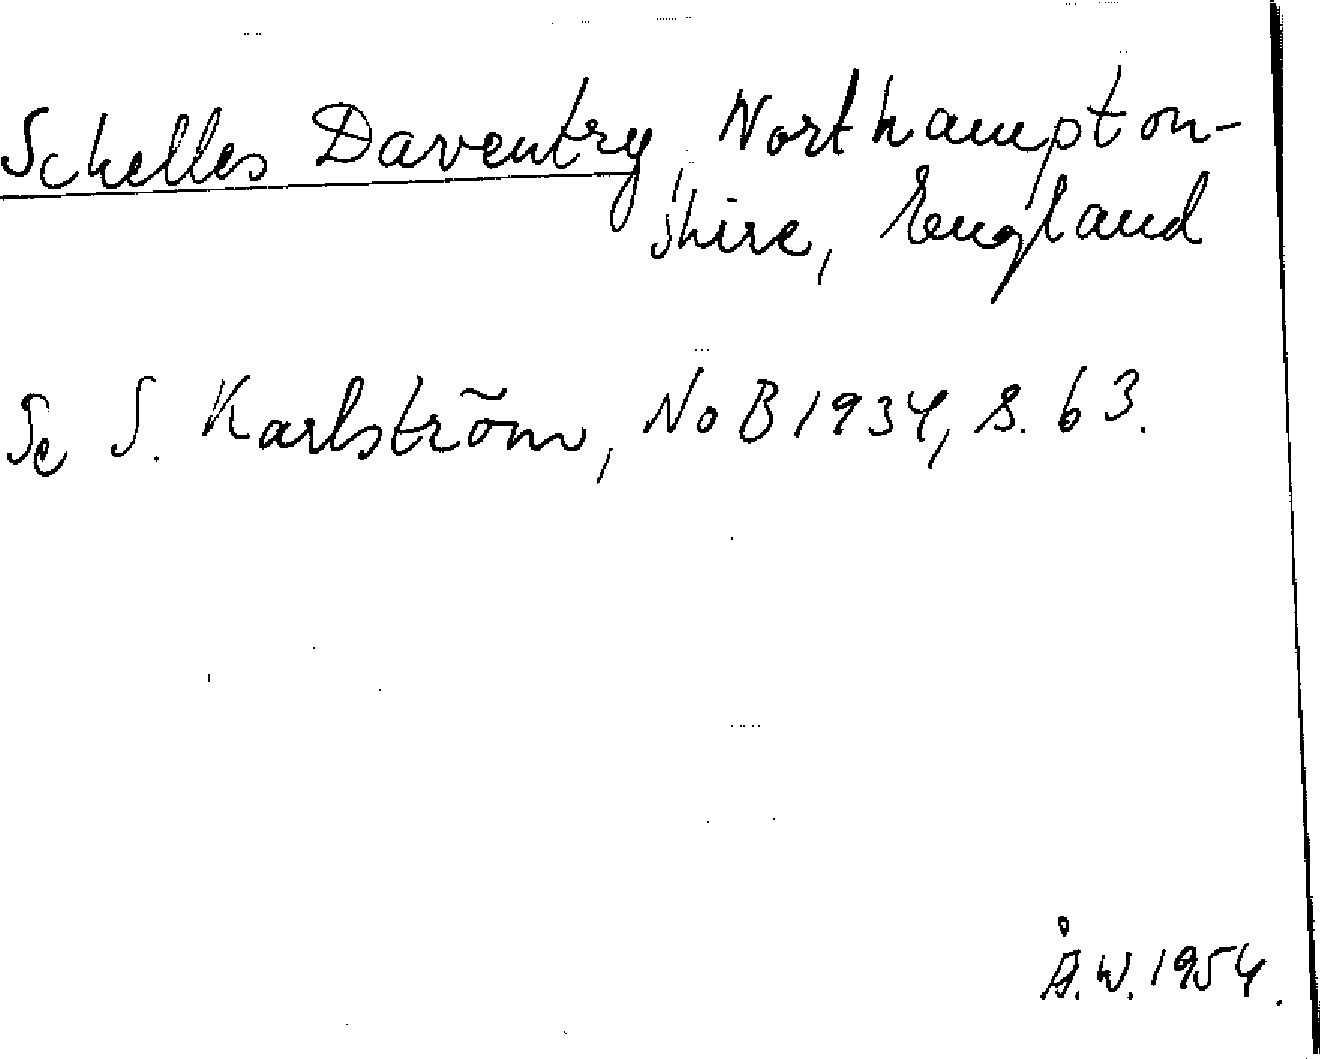 Schelles Daventry, Northampton-
shire, England
Se S. Karlström, NoB 1934, S. 63.
Å.W. 1954.